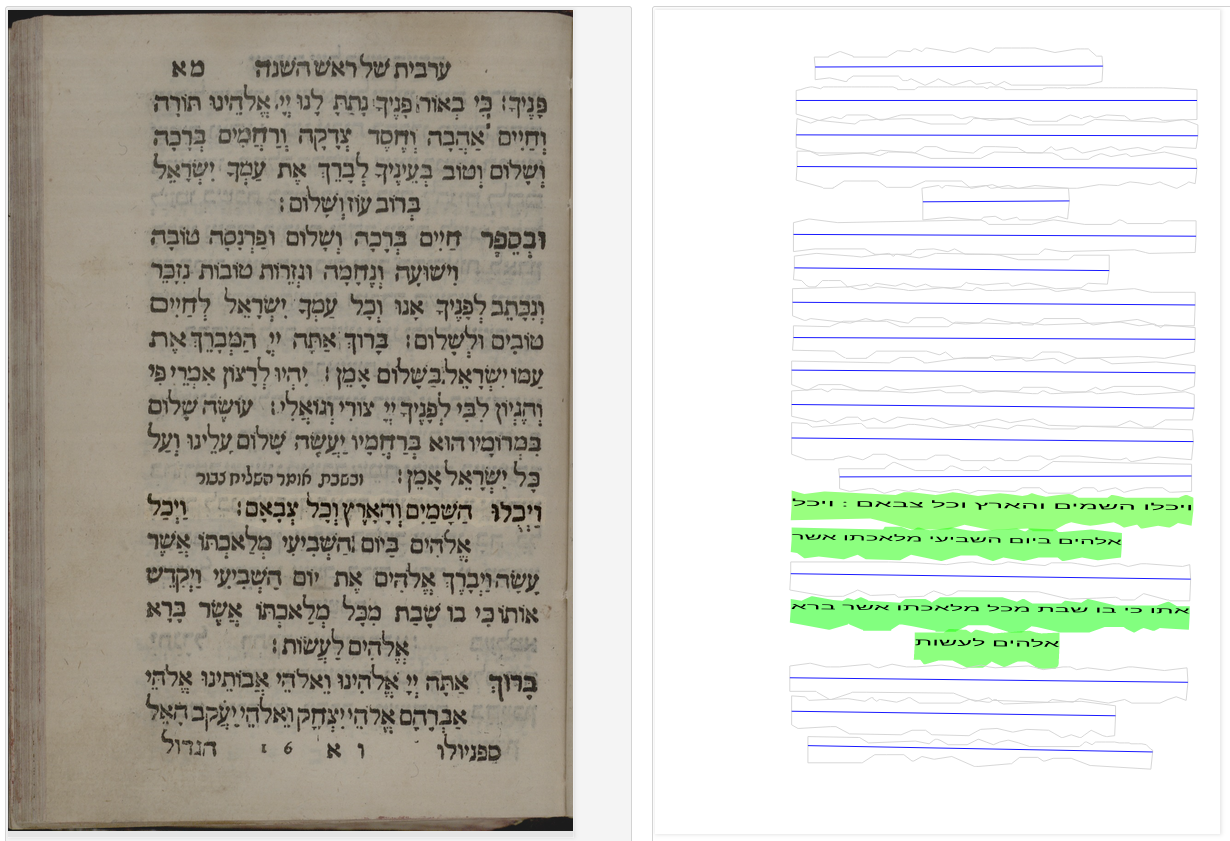 ערבית של ראש השנה מא
פָּנֶיךָ: כִּי בְאוֹר פָּנֶיךָ נָתַתָּ לָנוּ יְיָ אֱלֹהֵינוּ תּוֹרָה
וְחַיִּים אַהֲבָה וְחֶסֶד צְדָקָה וְרַחֲמִים בְּרָכָה
וְשָׁלוֹם וְטוֹב בְּעֵינֶיךָ לְבָרֵךְ אֶת עַמְּךָ יִשְׂרָאֵל
בְּרוֹב עוֹז וְשָׁלוֹם:
וּבְסֵפֶר חַיִּים בְּרָכָה וְשָׁלוֹם וּפַרְנָסָה טוֹבָה
וִישׁוּעָה וְנֶחָמָה וּגְזֵרוֹת טוֹבוֹת נִזָּכֵר
וְנִכָּתֵב לְפָנֶיךָ אָנוּ וְכָל עַמְּךָ יִשְׂרָאֵל לְחַיִּים
טוֹבִים וּלְשָׁלוֹם: בָּרוּךְ אַתָּה יְיָ הַמְבָרֵךְ אֶת
עַמּוֹ יִשְׂרָאֵל בַּשָּׁלוֹם אָמֵן: יִהְיוּ לְרָצוֹן אִמְרֵי פִי
וְהֶגְיוֹן לִבִּי לְפָנֶיךָ יְיָ צוּרִי וְגוֹאֲלִי: עוֹשֶׂה שָׁלוֹם
בִּמְרוֹמָיו הוּא בְּרַחֲמָיו יַעֲשֶׂה שָׁלוֹם עָלֵינוּ וְעַל
כָּל יִשְׂרָאֵל אָמֵן: ובשבת אומר השליח צבור
וַיְכֻלּוּ הַשָּׁמַיִם וְהָאָרֶץ וְכָל צְבָאָם: וַיְכַל
אֱלֹהִים בַּיּוֹם הַשְּׁבִיעִי מְלַאכְתּוֹ אֲשֶׁר
עָשָׂה וַיְבָרֶךְ אֱלֹהִים אֶת יוֹם הַשְּׁבִיעִי וַיְקַדֵּשׁ
אוֹתוֹ כִּי בוֹ שָׁבַת מִכָּל מְלַאכְתּוֹ אֲשֶׁר בָּרָא
אֱלֹהִים לַעֲשׂוֹת:
בָּרוּךְ אַתָּה יְיָ אֱלֹהֵינוּ וֵאלֹהֵי אֲבוֹתֵינוּ אֱלֹהֵי
אַבְרָהָם אֱלֹהֵי יִצְחָק וֵאלֹהֵי יַעֲקֹב הָאֵל
ספניולו ו א 6 1 הגדול
ויכלו השמים והארץ וכל צבאם : ויכל
אלהים ביום השביעי מלאכתו אשר
אתו כי בו שבת מכל מלאכתו אשר ברא
אלהים לעשות